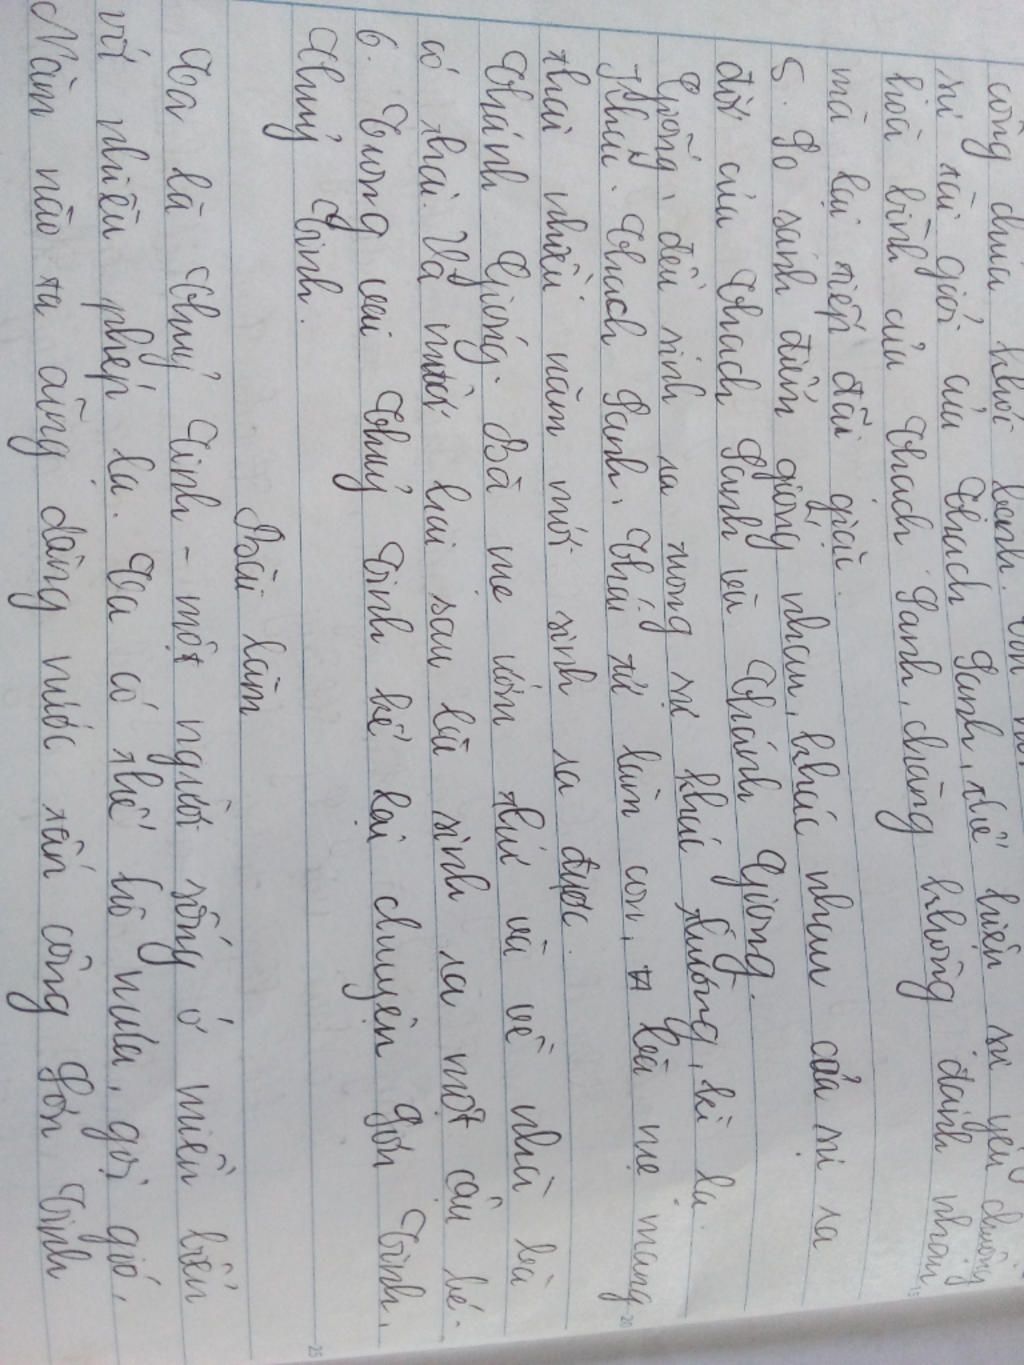 công chúa khỏi bệnh. Còn
sự tài giỏi của Thạch Sanh, thể hiện sự yêu chuộng
hoà bình của Thạch Sanh, chàng không đánh nhau
mà lại tiếp đãi giặc.
5. So sánh điểm giống nhau, khác nhau của sự ra
đời của Thạch Sanh và Thánh Gióng.
Giống: đều sinh ra trong sự khác thường, kì lạ.
Khác: Thạch Sanh: Thái tử làm con, bà mẹ mang
thai nhiều năm mới sinh ra được.
Thánh Gióng: Bà mẹ ướm thử và về nhà bà
có thai. Và mười hai sau bà sinh ra một cậu bé.
6. Trong vai Thuỷ Tinh kể lại chuyện Sơn Tinh,
Thuỷ Tinh.
Bài làm
Ta là Thuỷ Tinh - một người sống ở miền biển
với nhiều phép lạ. Ta có thể hô mưa, gọi gió,
Năm nào ta cũng dâng nước tấn công Sơn Tinh